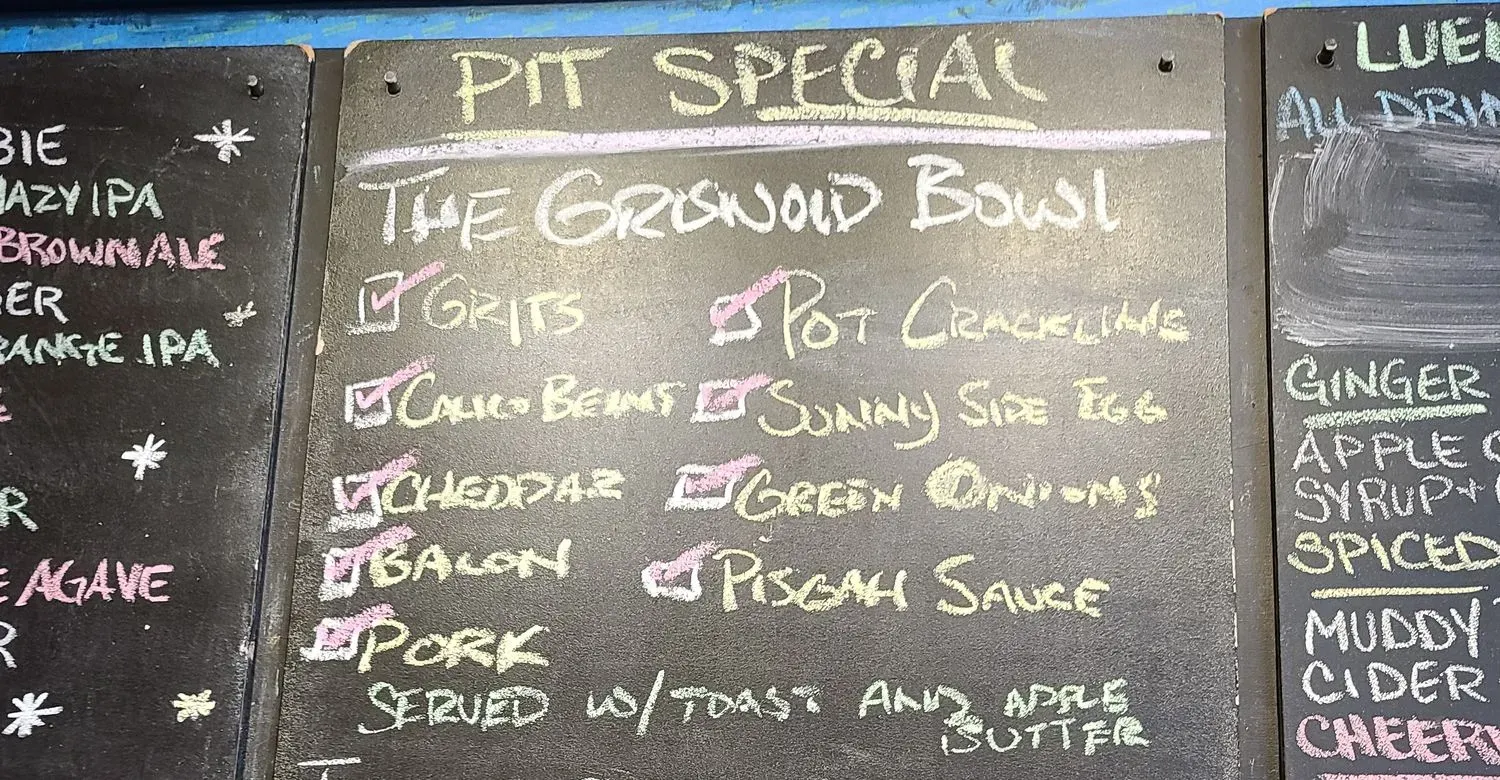 BIE
HAZY IPA
BROWN ALE
ER
RANGE IPA
E
R
E AGAVE
R
PIT SPECIAL
THE GRISWOLD BOWL
GRITS
POT CRACKLINE
CALICO BEANS
SUNNY SIDE EGG
CHEDDAR
GREEN ONIONS
BACON
PISGAH SAUCE
PORK
SERVED W/ TOAST AND APPLE
BUTTER
ALL DRIN
GINGER
APPLE
SYRUP +
SPICED
MUDDY
CIDER
CHEERW